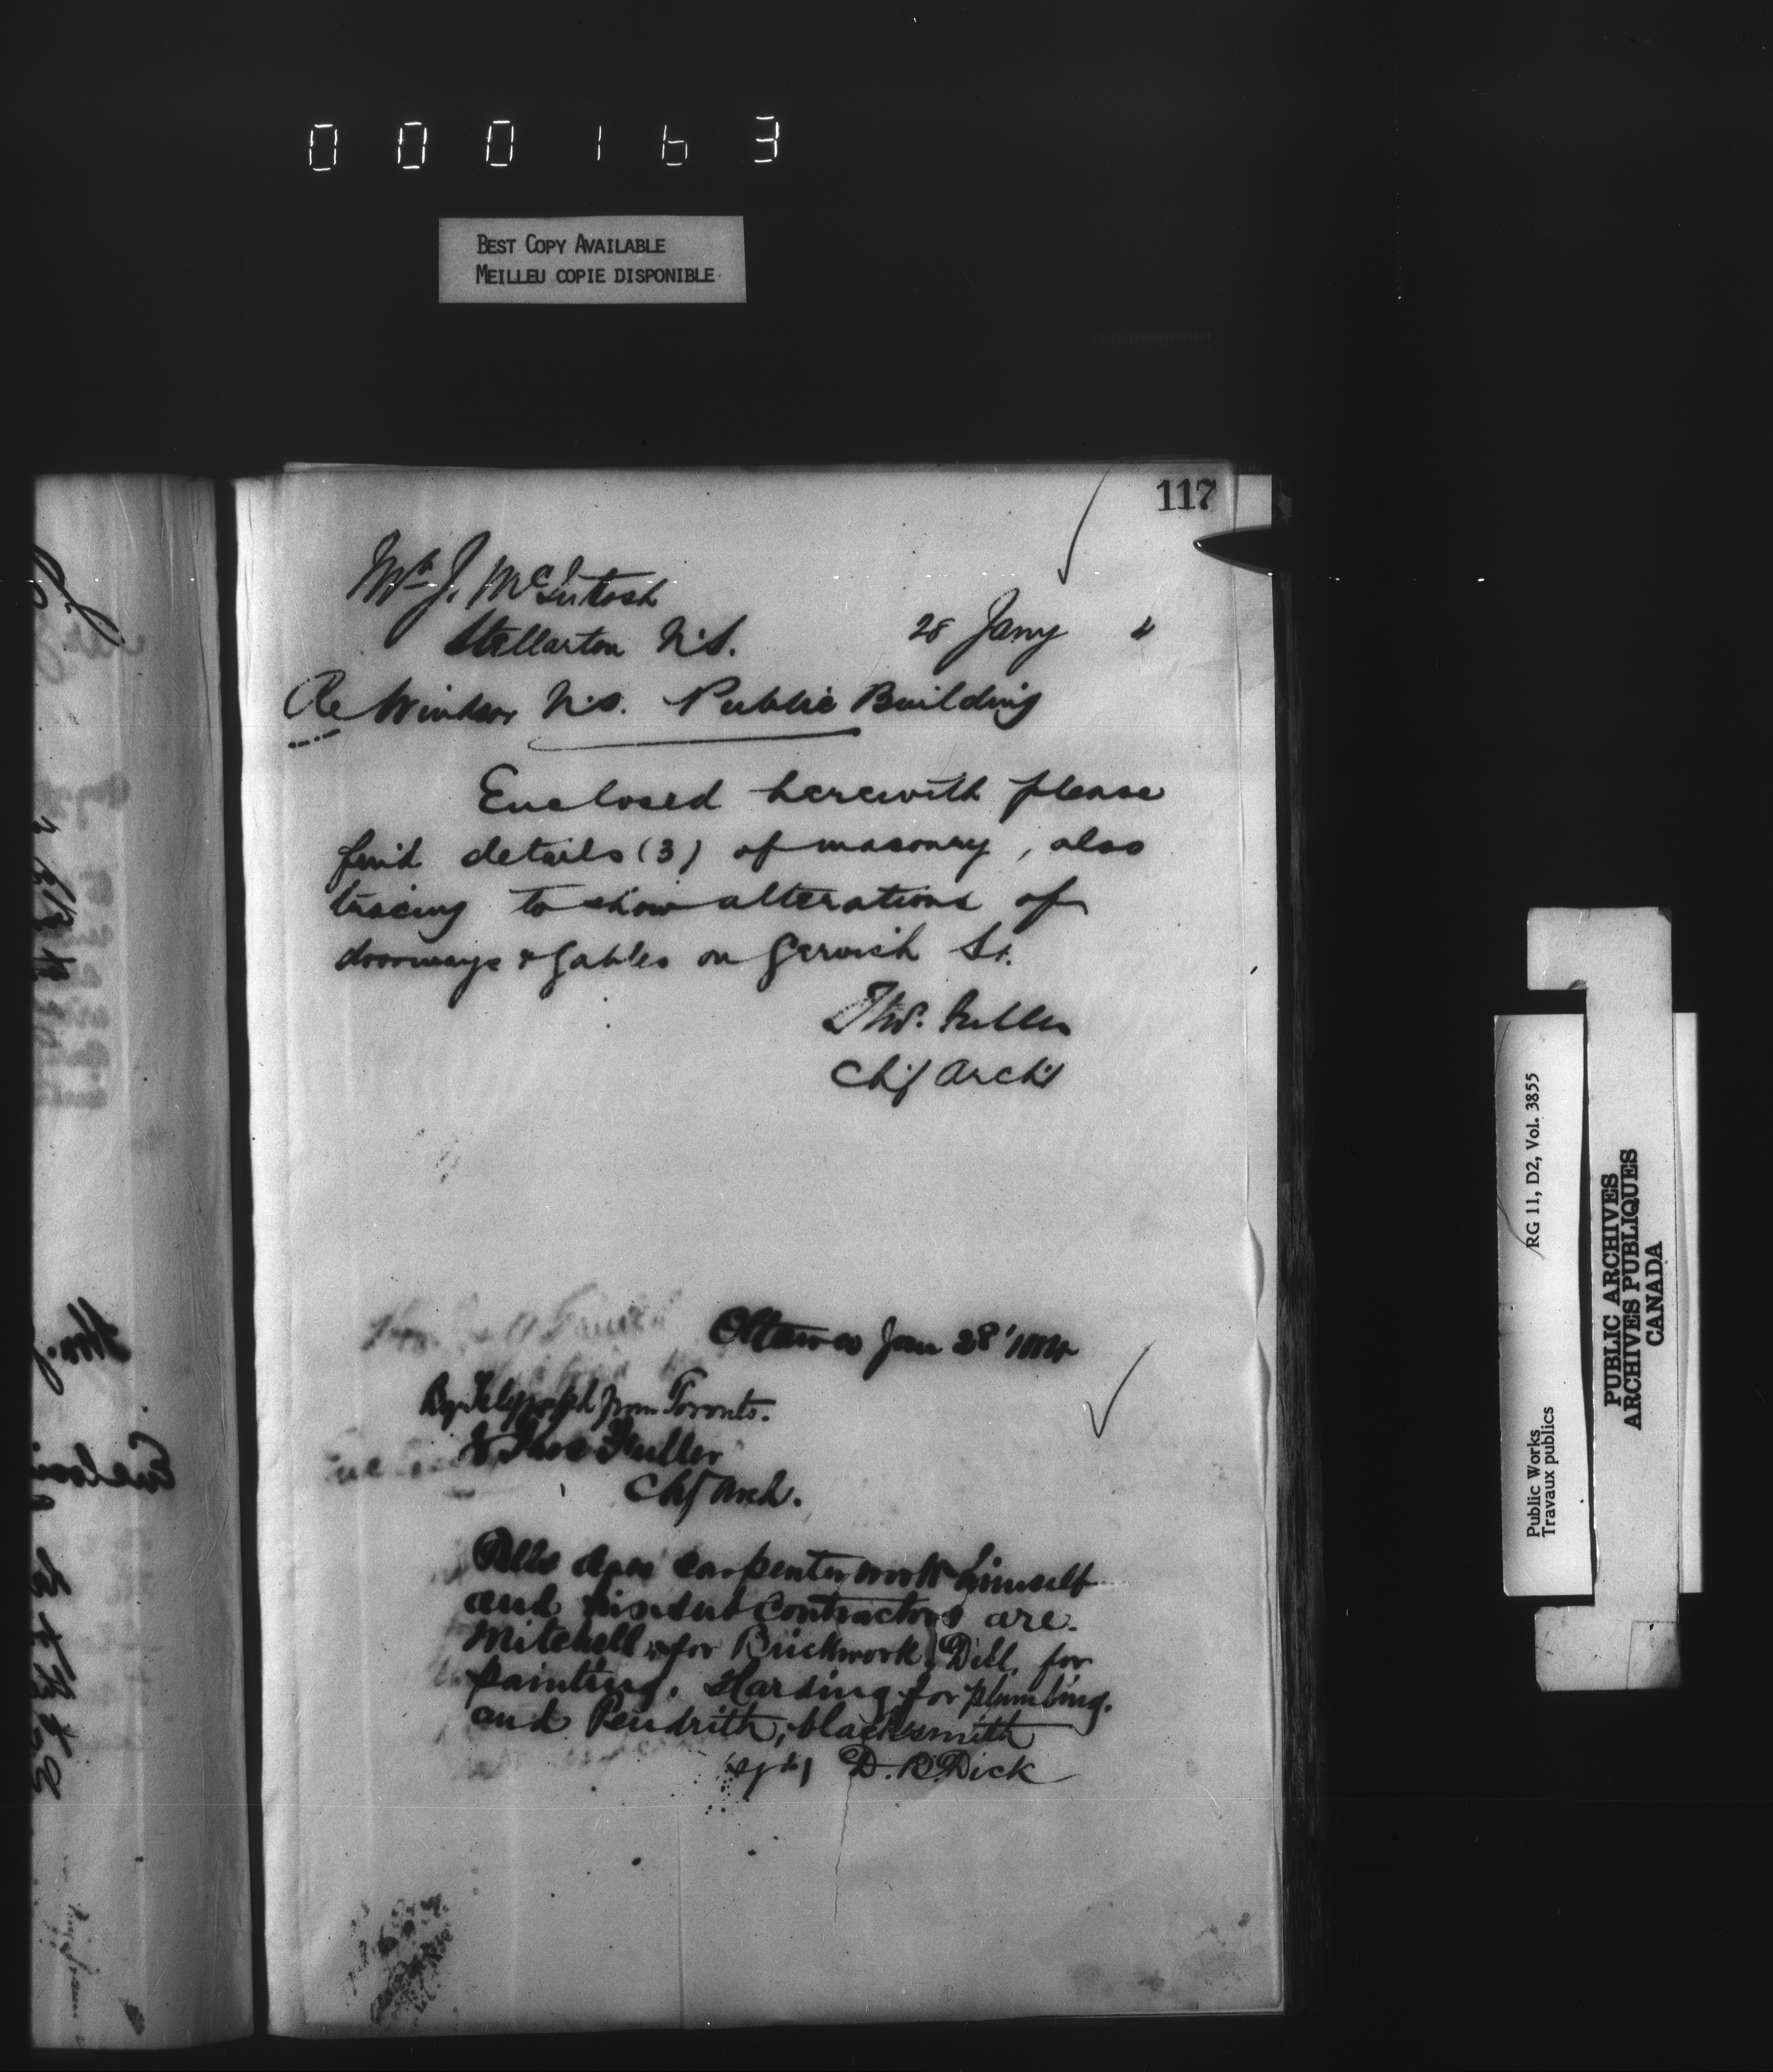 000163
BEST COPY AVAILABLE
MEILLEU COPIE DISPONIBLE
117
Mr J. McIntosh
Stellarton N.S. 28 Jany 4
Re Windsor N.S. Public Building
Enclosed herewith please
find details (3) of masonry, also
tracing to show alterations of
doorways & gables on Gerrish St.
Thos. Fuller
Chf Archt
Ottawa Jan 28 1884
By Telegraph from Toronto.
To Thos Fuller
Chf Arch.
does carpenter work himself
and his sub contractors are.
Mitchell, for Brickwork, Dill, for
painting. Harding for plumbing.
and Pendrith, blacksmith
sgd D. B. Dick
Public Works RG 11, D2, Vol. 3855
Travaux publics
PUBLIC ARCHIVES
ARCHIVES PUBLIQUES
CANADA